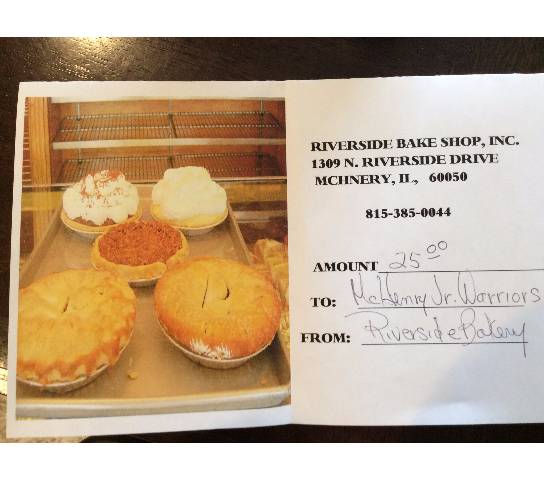 RIVERSIDE BAKE SHOP, INC.
1309 N. RIVERSIDE DRIVE
MCHNERY, IL, 60050
815-385-0044
AMOUNT 25 00
TO: McHenry Jr. Warriors
FROM: Riverside Bakery